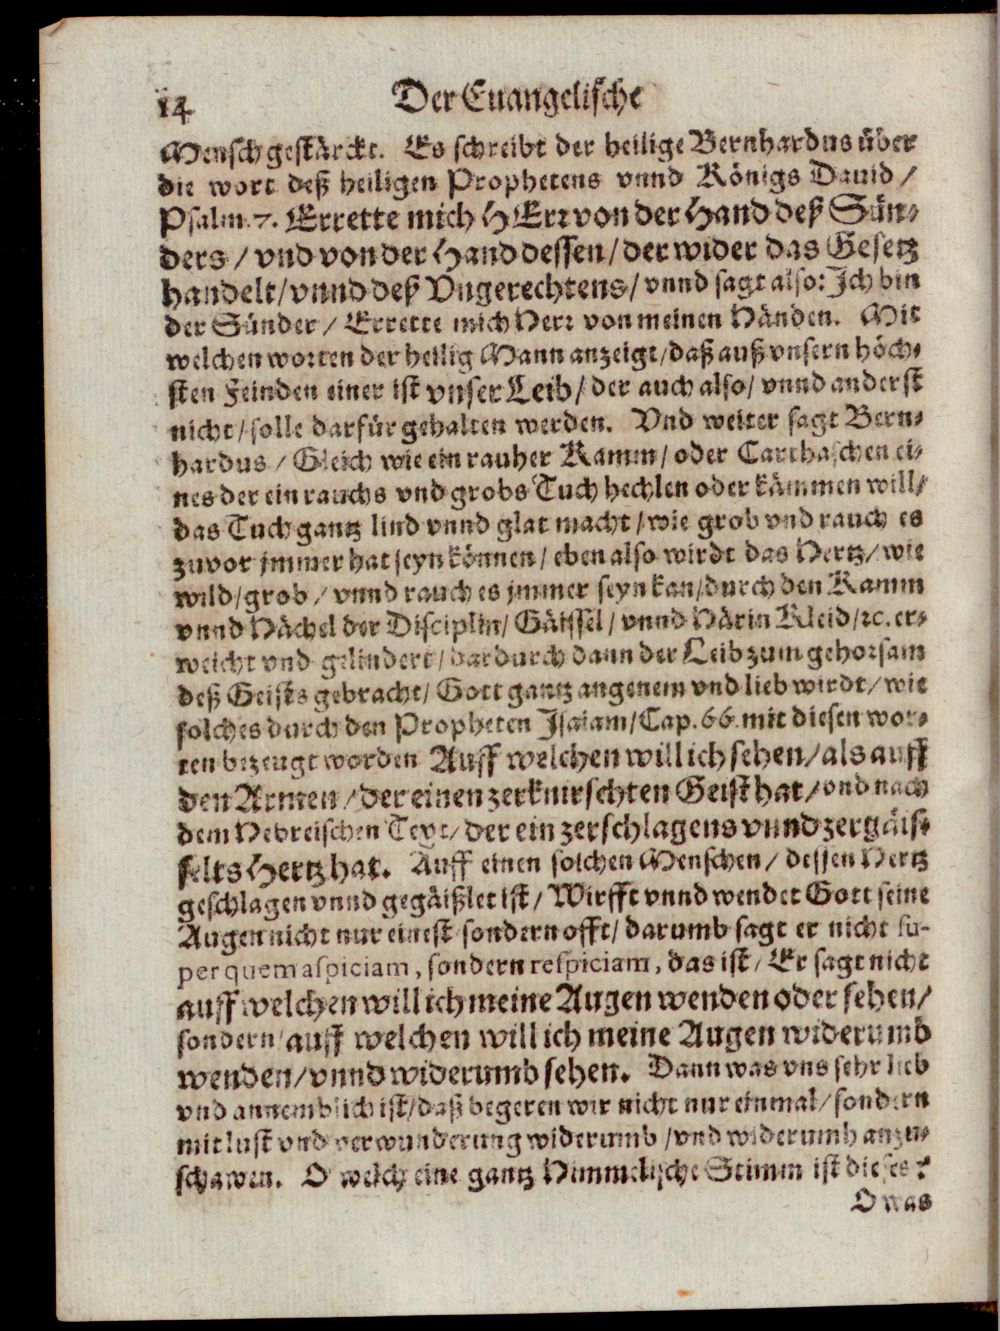 14 Der Euangelische
Mensch gestärckt. Es schreibt der heilige Bernhardus über
die wort deß heiligen Prophetens vnnd Königs Dauid /
Psalm. 7. Errette mich HErr von der Hand deß Sün-
ders / vnd von der Hand dessen / der wider das Gesetz
handelt / vnnd deß Vngerechtens / vnnd sagt also: Ich bin
der Sünder / Errette mich Herr von meinen Händen. Mit
welchen worten der heilig Mann anzeigt / daß auß vnsern höch-
sten Feinden einer ist vnser Leib / der auch also / vnnd anderst
nicht / solle darfür gehalten werden. Vnd weiter sagt Bern-
hardus / Gleich wie ein rauher Kamm / oder Carthaschen ei-
nes der ein rauchs vnd grobs Tuch hechlen oder kämmen will /
das Tuch gantz lind vnnd glat macht / wie grob vnd rauch es
zuvor jmmer hat seyn können / eben also wirdt das Hertz / wie
wild / grob / vnnd rauch es jmmer seyn kan / durch den Kamm
vnnd Hächel der Disciplin / Gäissel / vnnd Härin Kleid / ꝛc. er-
weicht vnd gelindert / dardurch dann der Leib zum gehorsam
deß Geists gebracht / Gott gantz angenem vnd lieb wirdt / wie
solches durch den Propheten Isaiam / Cap. 66. mit diesen wor-
ten bezeugt worden Auff welchen will ich sehen / als auff
den Armen / der einen zerknirschten Geist hat / vnd nach
dem Hebreischen Text / der ein zerschlagens vnnd zergäis-
selts Hertz hat. Auff einen solchen Menschen / dessen Hertz
geschlagen vnnd gegäißlet ist / Wirfft vnnd wendet Gott seine
Augen nicht nur einest sondern offt / darumb sagt er nicht su-
per quem aspiciam, sondern respiciam, das ist / Er sagt nicht
auff welchen will ich meine Augen wenden oder sehen /
sondern / auff welchen will ich meine Augen widerumb
wenden / vnnd widerumb sehen. Dann was vns sehr lieb
vnd annemblich ist / daß begeren wir nicht nur einmal / sondern
mit lust vnd verwunderung widerumb / vnd widerumb anzu-
schawen. O welch eine gantz Himmelische Stimm ist dieses?
O was